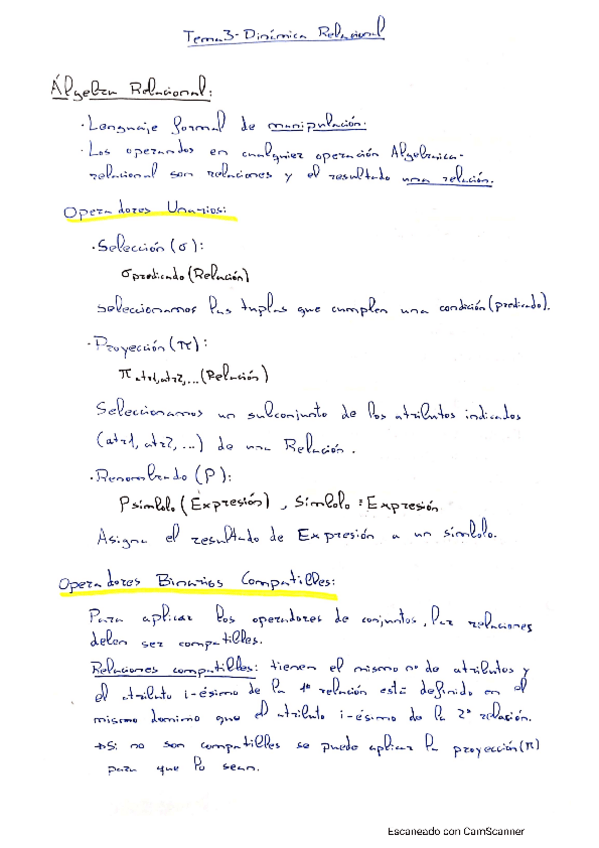 Tema 3- Dinámica Relacional
Álgebra Relacional:
· Lenguaje formal de manipulación.
· Los operandos en cualquier operación Algebraica-
relacional son relaciones y el resultado una relación.
Operadores Unarios:
· Selección (σ):
σpredicado (Relación)
Seleccionamos las tuplas que cumplen una condición (predicado).
· Proyección (π):
π atr1, atr2, ... (Relación)
Seleccionamos un subconjunto de los atributos indicados
(atr1, atr2, ...) de una Relación.
· Renombrado (P):
Psímbolo (Expresión) , Símbolo : Expresión
Asigna el resultado de Expresión a un símbolo.
Operadores Binarios Compatibles:
Para aplicar los operadores de conjuntos, las relaciones
deben ser compatibles.
Relaciones compatibles: tienen el mismo nº de atributos y
el atributo i-ésimo de la 1ª relación está definido en el
mismo dominio que el atributo i-ésimo de la 2ª relación.
→ Si no son compatibles se puede aplicar la proyección (π)
para que lo sean.
Escaneado con CamScanner